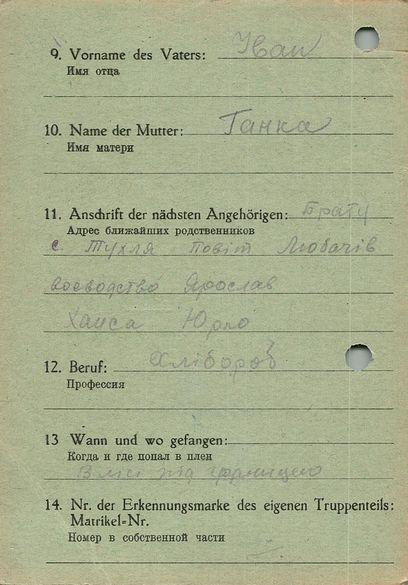 9. Vorname des Vaters: Іван
Имя отца
10. Name der Mutter: Ганка
Имя матери
11. Anschrift der nächsten Angehörigen: Брату
Адрес ближайших родственников
с. Тухля повіт Любачів
воєводство Ярослав
Юрко
12. Beruf: Хлібороб
Профессия
13 Wann und wo gefangen:
Когда и где попал в плен
В лісі під
14. Nr. der Erkennungsmarke des eigenen Truppenteils:
Matrikel=Nr.
Номер в собственной части